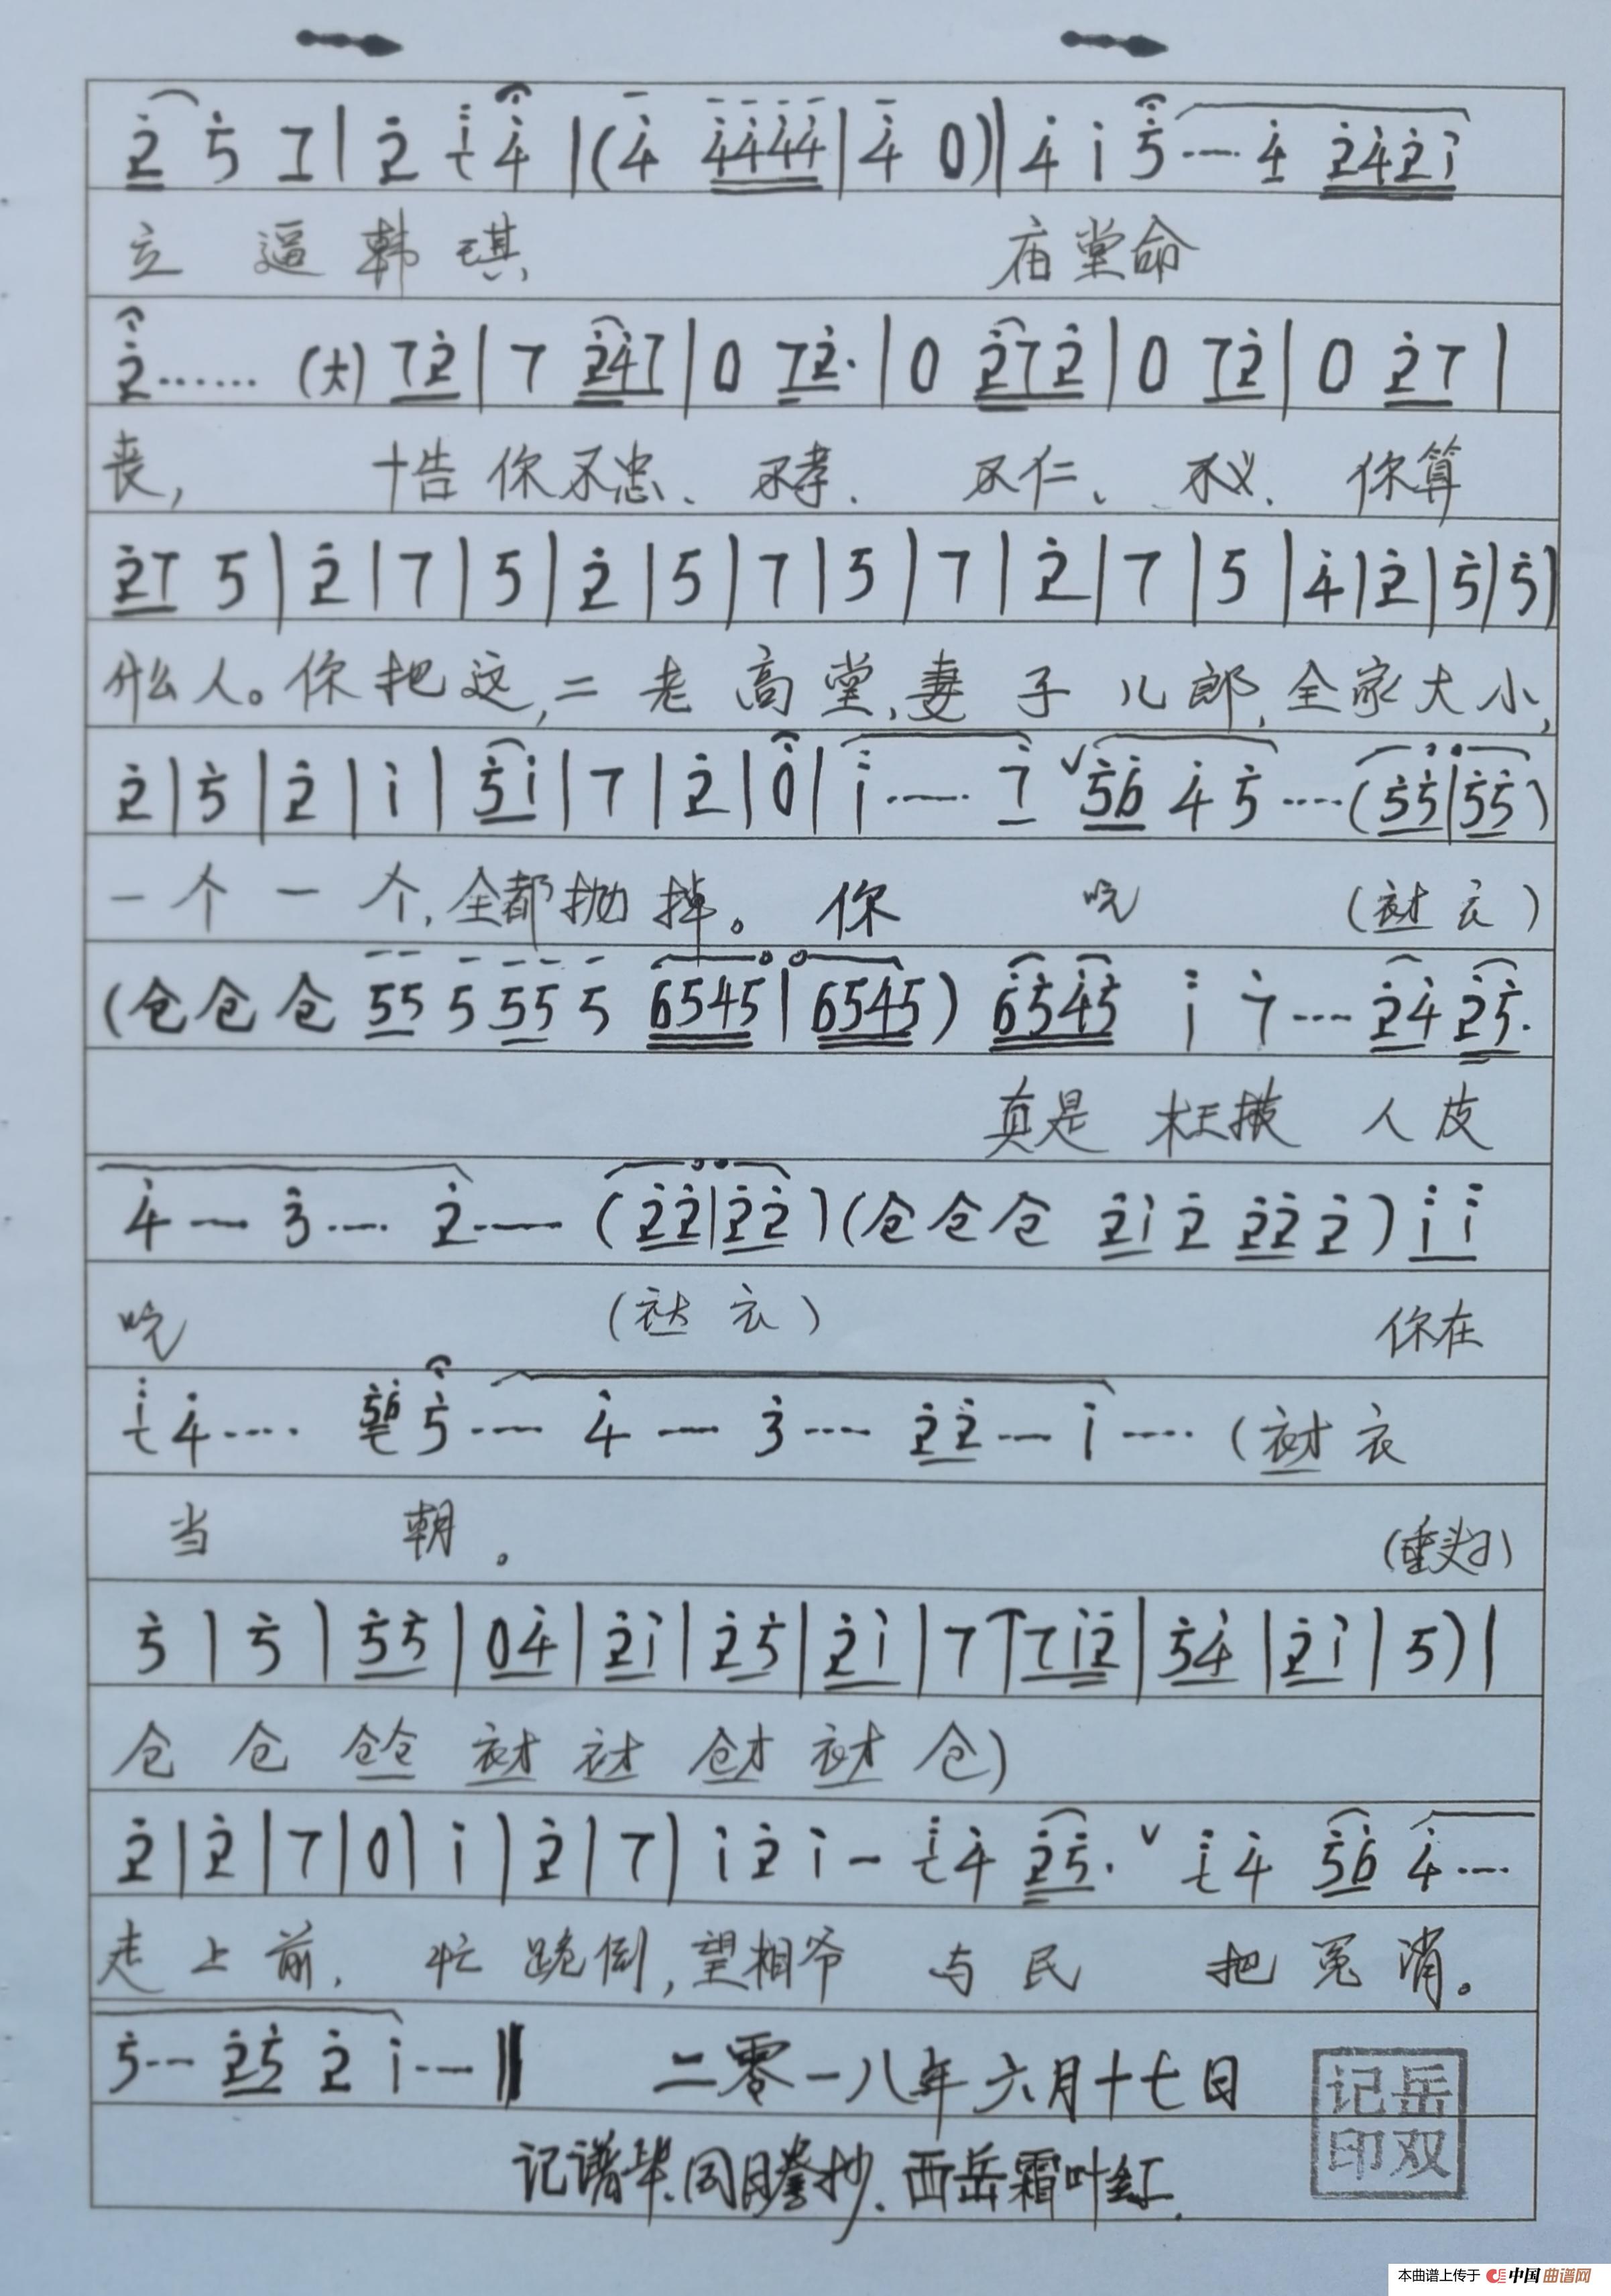 2 5 7 | 2 i 4 | (4 4444 | 4 0) | 4 i 5 --- 4 242i
立 逼 韩 琪, 庙堂命
2 ...... (大) 72 | 7 247 | 0 72· | 0 272 | 0 72 | 0 27 |
丧, 十告你不忠、不孝、不仁、不义、你算
27 5 | 2 | 7 | 5 | 2 | 5 | 7 | 5 | 7 | 2 | 7 | 5 | 4 | 2 | 5 | 5 |
什么人。你把这,二老高堂,妻子儿郎,全家大小,
2 | 5 | 2 | i | 5i | 7 | 2 | 0 | i ---- 7 ˇ 56 4 5 ---- (55 | 55)
一个一个,全都抛掉。你 吃 (衣)
(仓 仓 仓 55 5 55 5 6545 | 6545) 6545 i 7 --- 24 25·
真是 枉披 人皮
4 -- 3 --- 2 --- (22 | 22) (仓 仓 仓 2i 2 22 2) i i
吃 (衣) 你在
i 4 ---- 56 5 --- 4 -- 3 --- 22 -- i ---- (衣才 衣
当 朝。 (垂头)
5 | 5 | 55 | 04 | 2i | 25 | 2i | 7 | 7i2 | 54 | 2i | 5) |
仓 仓 仓仓 衣才 衣才 仓才 衣才 仓)
2 | 2 | 7 | 0 | i | 2 | 7 | i 2 i - i 4 25· ˇ i 4 56 4 ---
走上前, 忙跪倒,望相爷 与民 把冤消。
5 --- 25 2 i --- ‖ 二零一八年六月十七日
记谱毕.同日誊抄.西岳霜叶红.
记岳
印双
本曲谱上传于 中国曲谱网